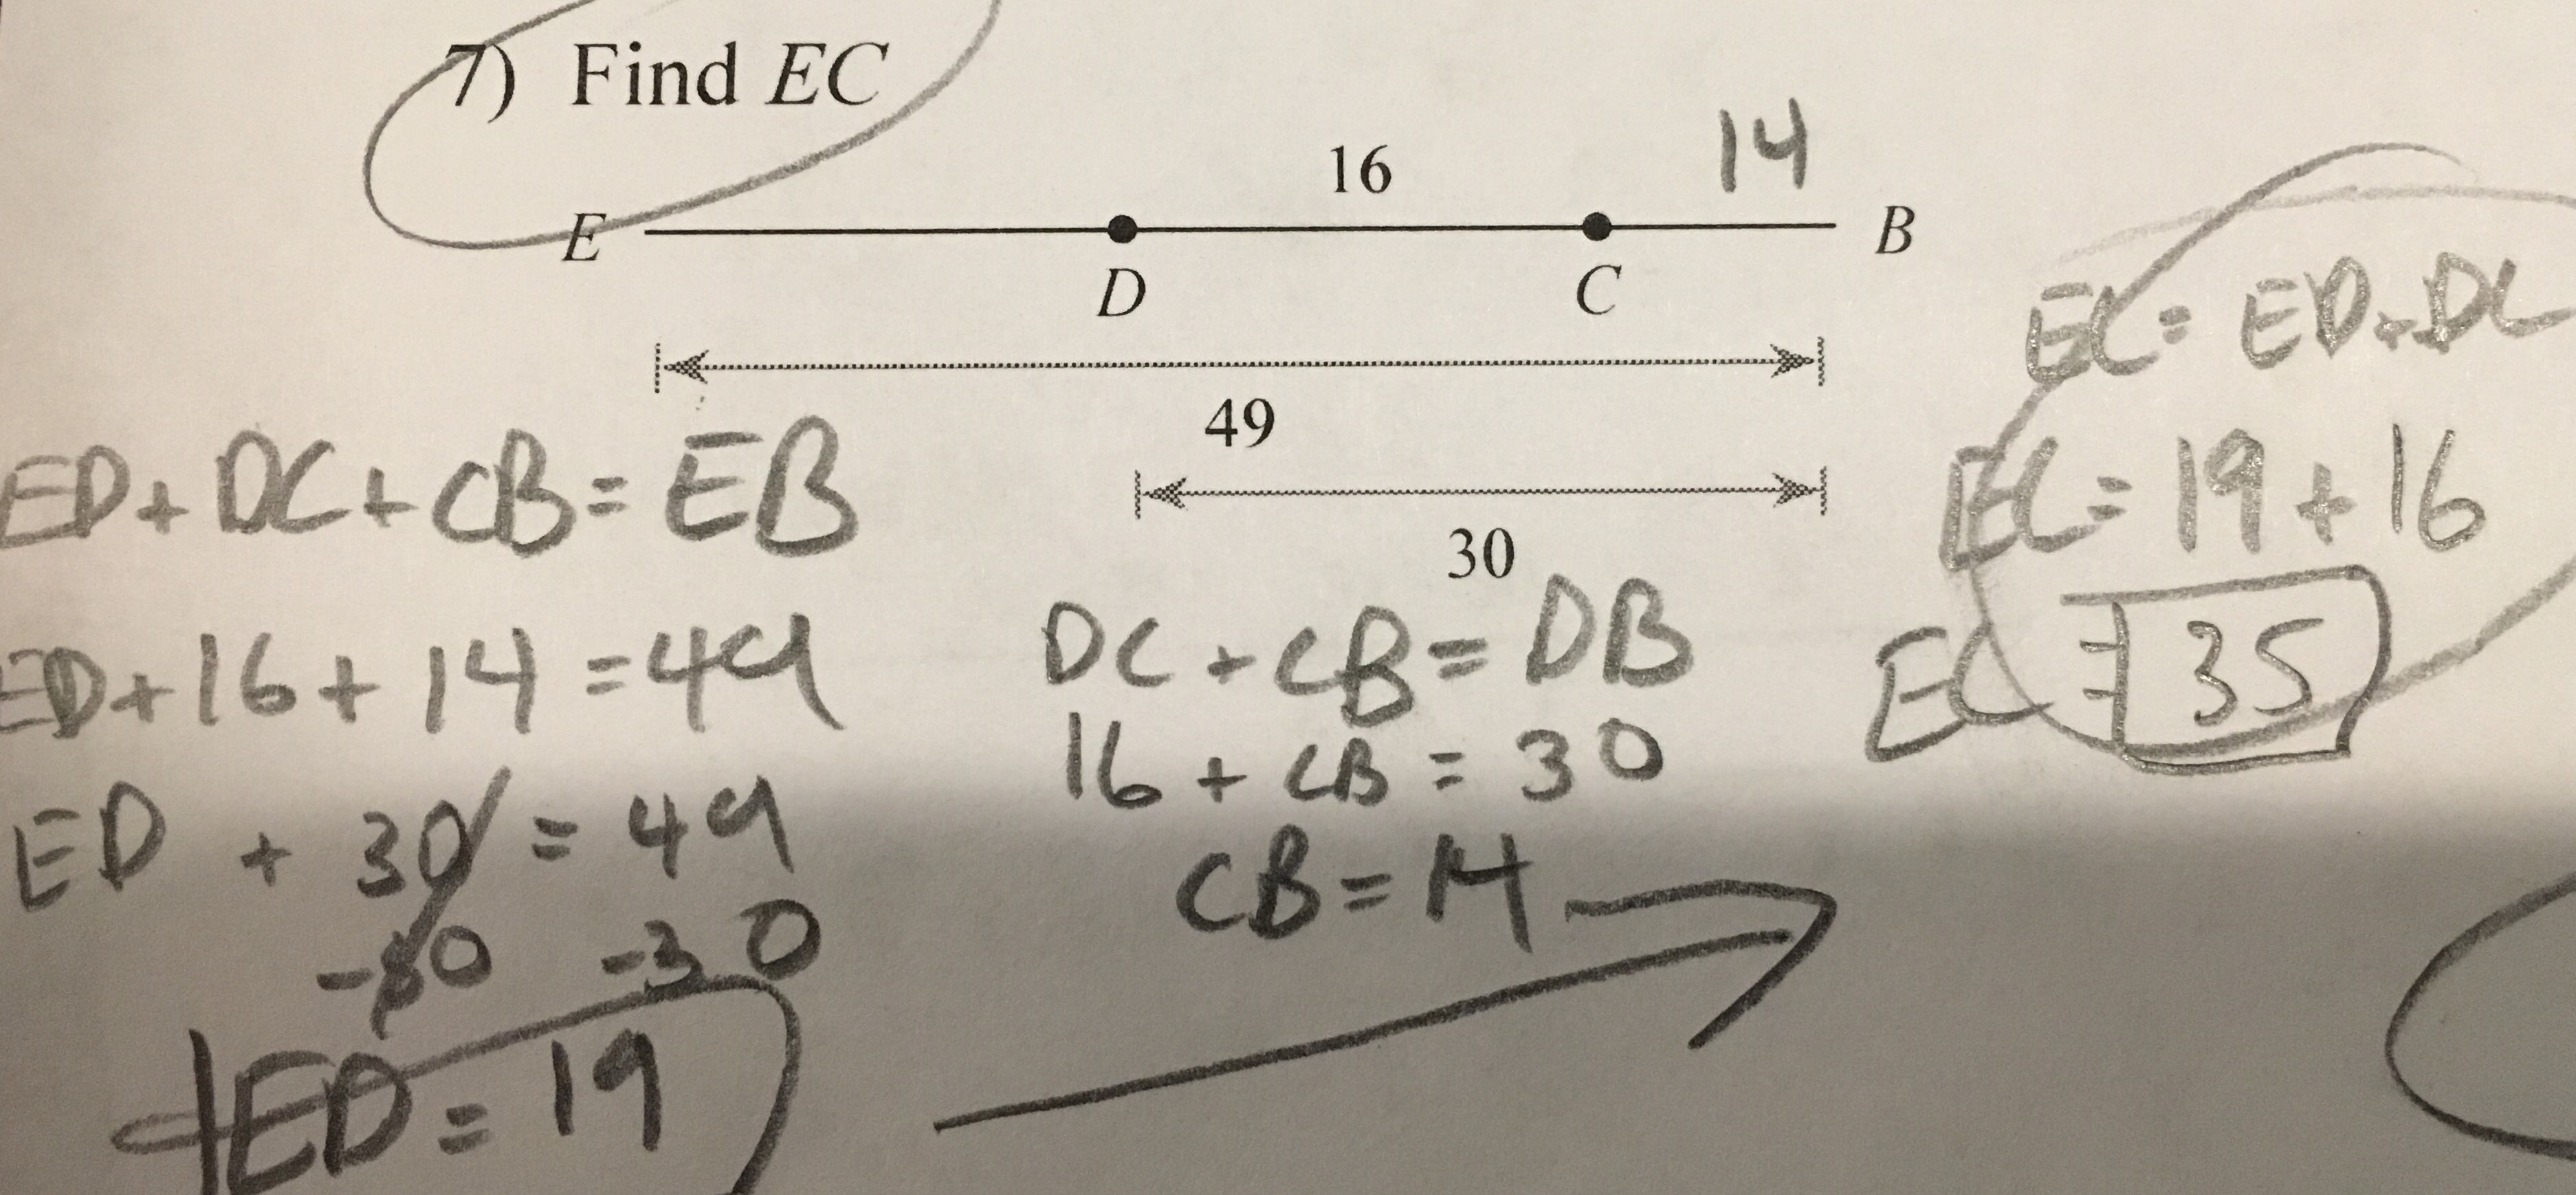 7) Find EC
14
16
E
B
D
C
49
30
ED+DC+CB=EB
ED+16+14=49
ED + 30 = 49
-30 -30
ED=19
DC+CB=DB
16+CB=30
CB=14
EC=ED+DC
EC=19+16
EC=35